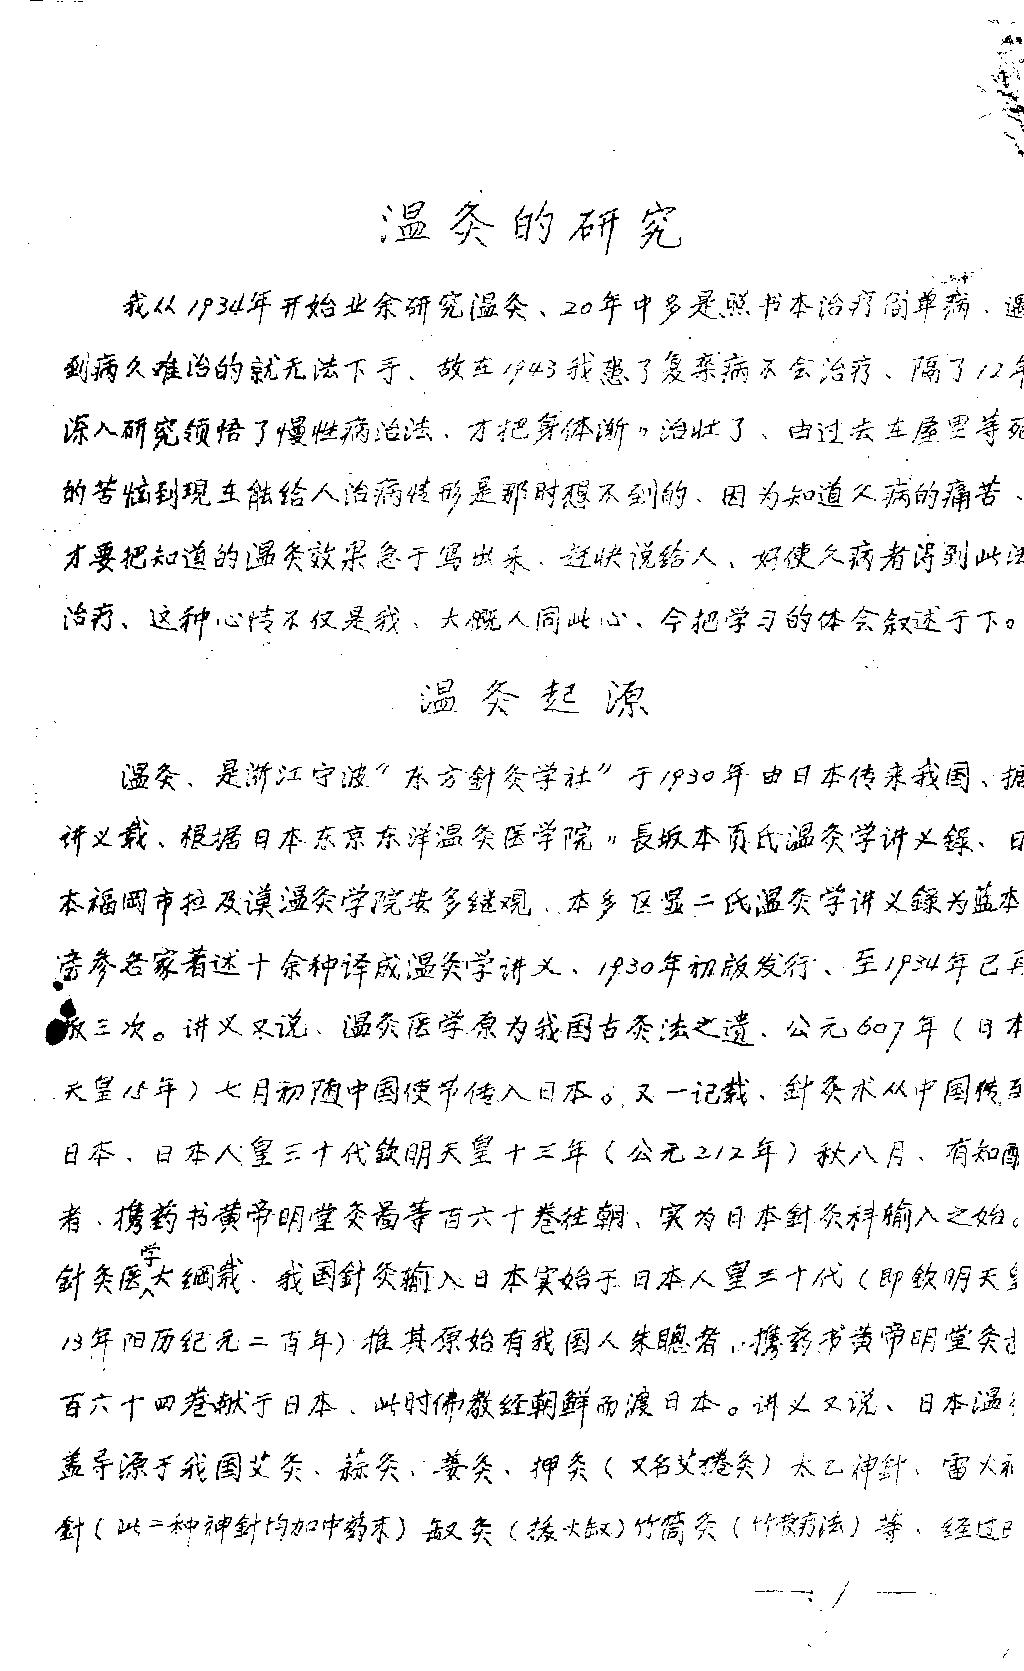 温灸的研究
我从1934年开始业余研究温灸、20年中多是照书本治疗简单病、遇
到病久难治的就无法下手、故在1943我患了复杂病不会治疗、隔了12年
深入研究领悟了慢性病治法、才把身体渐〃治壮了、由过去在屋里等死
的苦恼到現在能给人治病情形是那时想不到的、因为知道久病的痛苦、
才要把知道的温灸效果急于写出来、赶快说给人、好使久病者得到此法
治疗、这种心情不仅是我、大概人同此心、今把学习的体会叙述于下。
温灸起源
温灸、是浙江宁波“东方針灸学社”于1930年由日本传来我国、据
讲义载、根据日本东京东洋温灸医学院〃長坂本贡氏温灸学讲义錄、日
本福岡市拉及漠温灸学院安多继观、本多区显二氏温灸学讲义錄为蓝本
旁参名家著述十余种译成温灸学讲义、1930年初版发行、至1934年已再
版三次。讲义又说、温灸医学原为我国古灸法之遗、公元607年（日本
天皇15年）七月初随中国使节传入日本。又一记载、針灸术从中国传到
日本、日本人皇三十代欽明天皇十三年（公元212年）秋八月、有知聰
者、携药书黄帝明堂灸啚等百六十卷往朝、实为日本針灸科輸入之始。
針灸医学大綱载、我国針灸輸入日本实始于日本人皇三十代（即欽明天皇
13年阳历纪元二百年）推其原始有我国人朱聰者、携药书黄帝明堂灸
百六十四卷献于日本、此时佛教经朝鲜而渡日本。讲义又说、日本温灸
盖导源于我国艾灸、蒜灸、姜灸、押灸（又名艾捲灸）太乙神針、雷火神
針（此二种神針均加中药末）缸灸（拔火缸）竹筒灸（竹散疗法）等、经过日
— 1 —